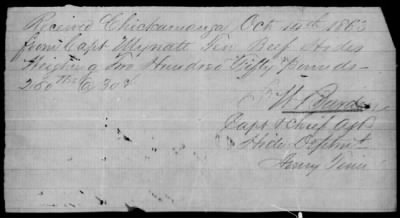 Received Chickamauga Oct 14th 1863
from Capt Mynatt Ten Beef Hides
Weighing Two Hundred Fifty Pounds
250 lbs @ 30¢
Capt & Chief Agt
Hide Deptmt